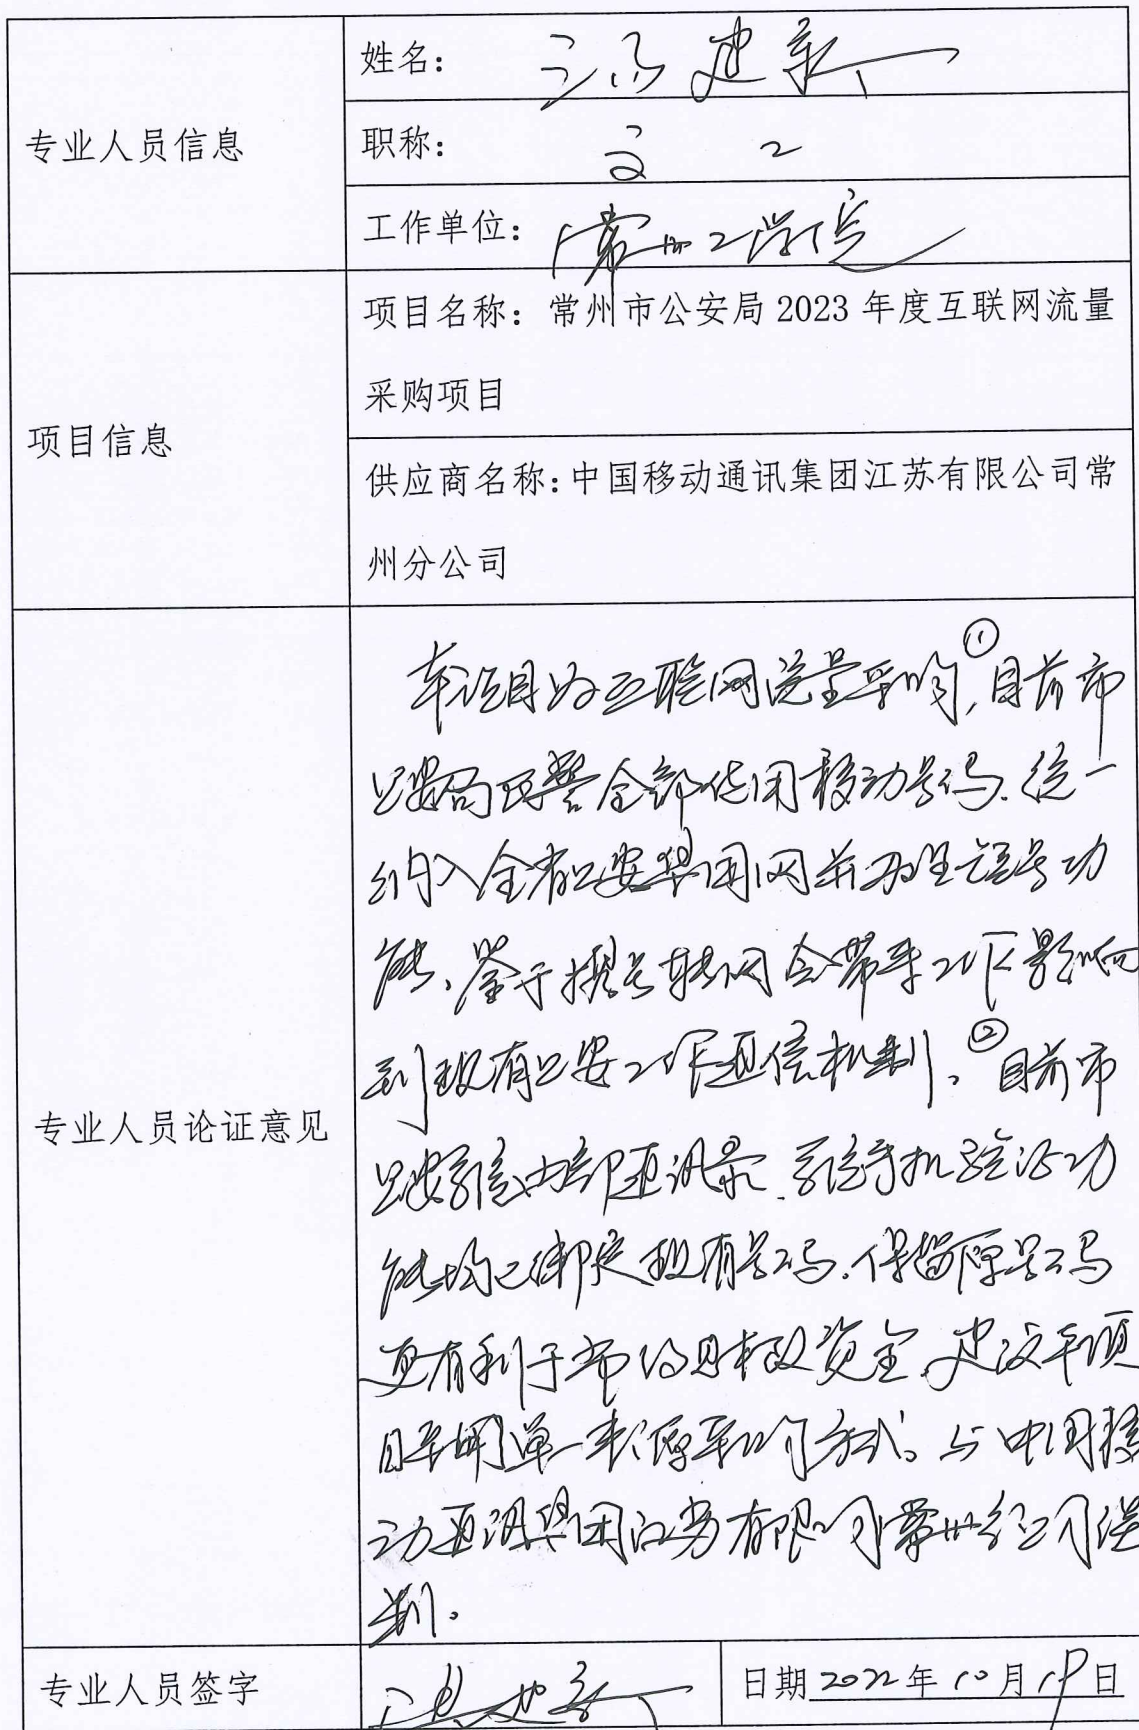 专业人员信息
姓名：建新
职称：高工
工作单位：常州工学院
项目信息
项目名称：常州市公安局 2023 年度互联网流量
采购项目
供应商名称：中国移动通讯集团江苏有限公司常
州分公司
专业人员论证意见
本项目为互联网流量采购，①目前市
公安局民警全部使用移动号码、统一
纳入全省公安集团网并办理短号功
能、鉴于携号转网会带来工作影响
到现有公安工作通信机制。②目前市
公安系统内部通讯录、系统手机验证功
能均已绑定现有号码，保留原号码
更有利于节约财政资金，建议本项
目采用单一来源采购方式，与中国移
动通讯集团江苏有限公司常州分公司谈
判。
专业人员签字
日期 2022 年 10 月 19 日